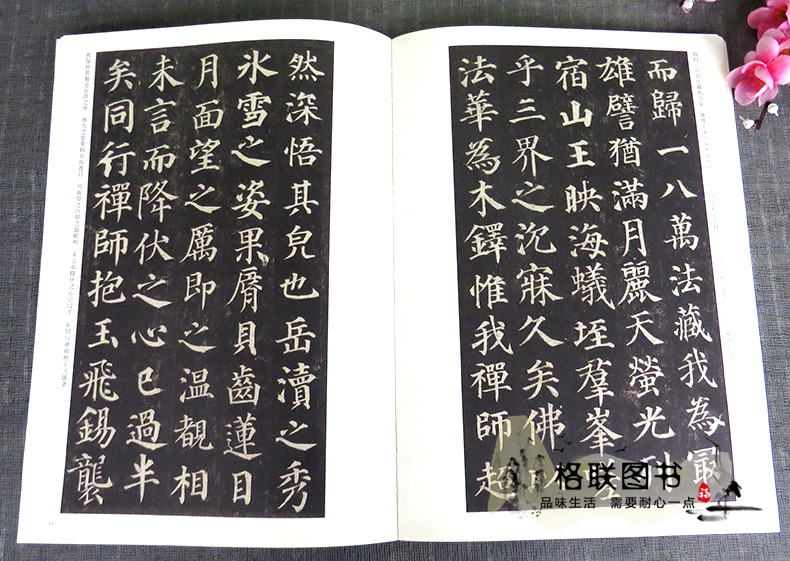 而歸一八萬法藏我為冣
雄譬猶滿月麗天螢光列
宿山王映海蟻垤羣峯
乎三界之沉寐久矣佛
法華為木鐸惟我禪師超
然深悟其皃也岳瀆之秀
氷雪之姿果脣貝齒蓮目
月面望之厲即之温覩相
未言而降伏之心已過半
矣同行禪師抱玉飛錫襲
格联图书
品味生活 需要耐心一点
福